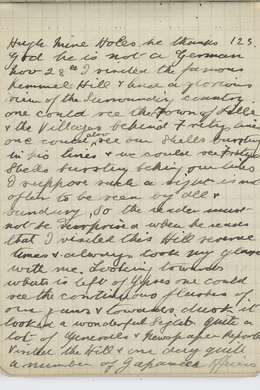 Huge Mine Holes, he thanks 123.
God he is not a German
Nov 28th I visited the famous
Kemmel Hill & had a glorious
view of the surrounding country
one could see the Town of Lille
& the Villages behind Fritz's line
one could also see our Shells bursting
in his lines & we could see Fritz's
Shells bursting behind our lines
I suppose such a sight is not
often to be seen by all &
sundry, So the reader must
not be surprised when he reads
that I visited this Hill several
times & always took my glass
with me. Looking towards
whats is left of Ypres one could
see the continuous flashes of
our guns & towards dusk it
looked a wonderful Sight quite a
lot of Generals & Newspaper Reporters
visited the Hill & one day quite
a number of Japanese Officers